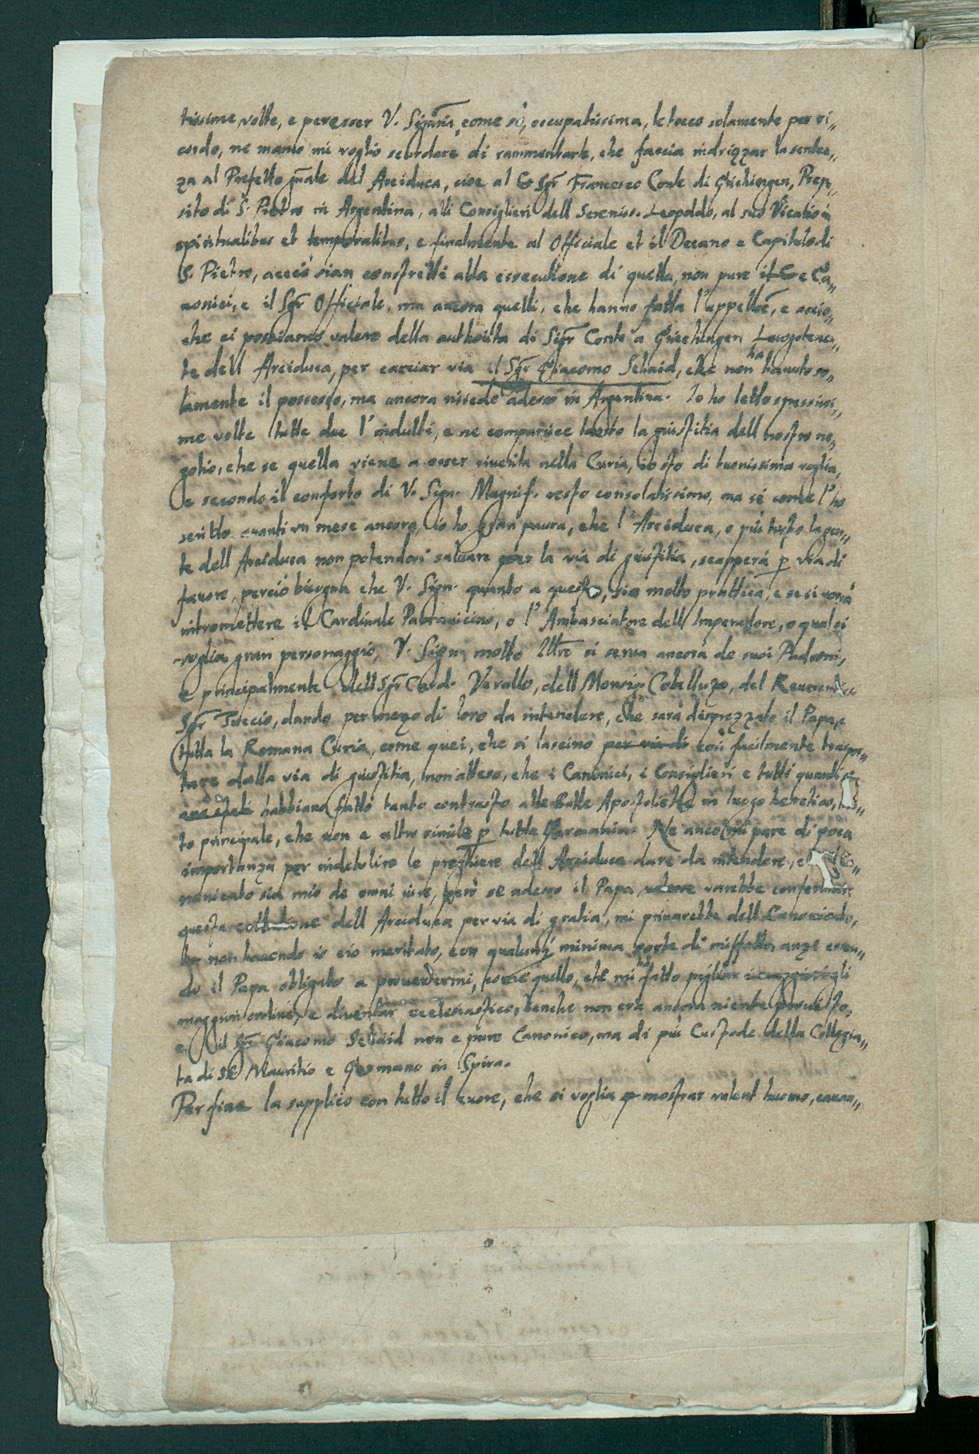 tissime volte, e per esser V. Signoria, come so, occupatissima, le tocco solamente per ri„
cordo, ne manco mi voglio scordare di rammentarle, che faccia indrizzar la senten„
za al Prefetto gnale del Arciduca, cioe al Sgr Francesco Conte di Grichingen, Prep„
sito di S. Pietro in Argentina, alli Consiglieri dell Sereniss. Leopoldo, al suo Vicario in
spiritualibus et temporalibus, e finalmente al Officiale et il Decano e Capitulo di
S. Pietro, acciò sian constretti alla essecutione di quella, non pure il e Ca„
nonici, e il Sgr Officiale, ma ancora quelli, che hanno fatta l'appellõe, e accio„
che ci possiamo valere della authorita di Sigr Conte a Griechingen Luogotenen„
te dell Arciduca, per cacciar via il Sgr Giacomo Schaid, che non ha havuto so„
lamente il possesso, ma ancora risiede adesso in Argentina. Io ho letto spessissi„
me volte tutte due l'indulti, e ne comparisce tanto la giustitia dell nostro ne„
gotio, che se quella viene a esser riverita nella Curia, io sto di buonissima voglia,
e secondo il conforto di V. Sign. Magnif. resto consolatissimo, ma sì come l'ho
scritto avanti un mese ancora, io ho gran paura, che l'Arciduca, o più tosto la gen„
te dell Arciduca non potendosi salvare per la via di giustitia, scapperà p via di
favore, perciò bisogna che V. Sign. quanto a questo, sia molto prattica, e se si vorrà
intromettere il Cardinale Paravicino, o l'Ambasciatore dell Imperatore, o qual si
voglia gran personaggio, V. Sign. molto Illre si serva ancora de suoi Padroni,
e principalmente dell Sgr Card. Verallo, dell Monsigr Cobelluzo, del Reverendo
Sgr Tuccio, dando per mezo di loro da intendere, che sarà disprezzato il Papa, e
tutta la Romana Curia, come quei, che si lascino per via di così facilmente traspor„
tare dalla via di giustitia, non atteso, che i Canonici, i Consiglieri e tutti quanti
habbiano fatto tanto contrasto alle Bolle Apostoliche in luogo heretico,
to principale, che non e altro simile p tutta Germania. Ne anco mi pare di poca
importanza per indebolire le preghiere dell Arciduca dare da intendere,
nonicato sia mio de omni iure, però se adesso il Papa volesse varebbe confermar
questa dell Arciduca per via di gratia, mi privarebbe dell Canonicato,
non havendo io ciò meritato, con qualunq minima sorte di misfatto, anzi essen„
do il Papa obligato a provedermi, come quello, che mi ha fatto pigliar gli
maggiori ordini, e diventar ecclesiastico, benche non era ancora niente provisto,
e il Sgr Giacomo Schaid non e pure Canonico, ma di più Custode della Collegia„
ta di SS. Mauritio e Germano in Spira.
Per fine la supplico con tutto il cuore, che si voglia mostrar valent huomo, cavan„